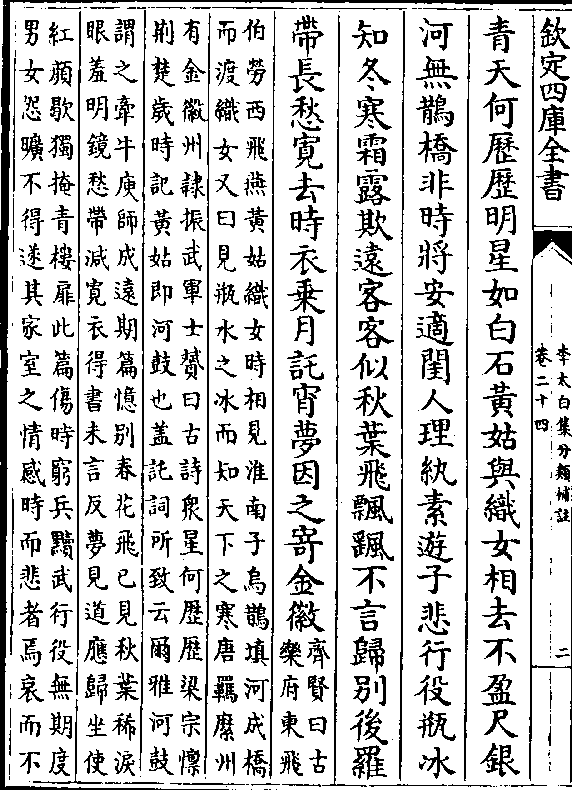 欽定四庫全書
李太白集分類補註
卷二十四
二
青天何歷歷明星如白石黃姑與織女相去不盈尺銀
河無鵲橋非時將安適閨人理紈素遊子悲行役瓶冰
知冬寒霜露欺遠客客似秋葉飛飄飖不言歸別後羅
帶長愁寛去時衣乗月託宵夢因之寄金徽
齊賢曰古
樂府東飛
伯勞西飛燕黃姑織女時相見淮南子烏鵲填河成橋
而渡織女又曰見瓶水之冰而知天下之寒唐羈縻州
有金徽州隸振武軍士贇曰古詩衆星何歷歷梁宗懍
荆楚歲時記黃姑即河鼓也蓋託詞所致云爾雅河鼓
謂之牽牛庾師成遠期篇憶別春花飛已見秋葉稀淚
眼羞明鏡愁帶減寛衣得書未言反夢見道應歸坐使
紅顔歇獨掩青樓扉此篇傷時窮兵黷武行役無期度
男女怨曠不得遂其家室之情感時而悲者焉哀而不